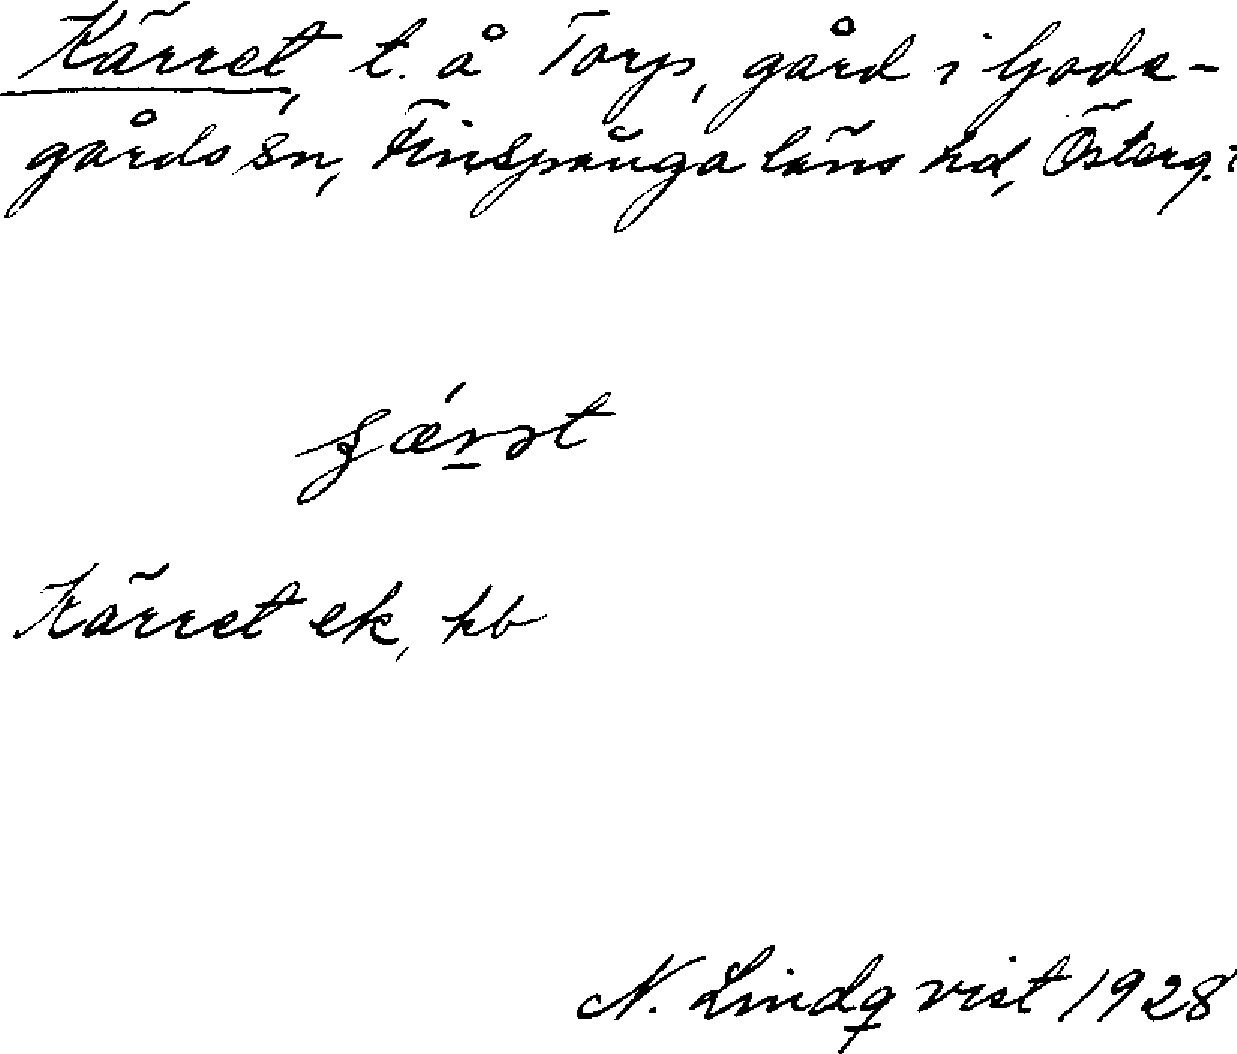 Kärret, t. å Torp, gård i Gode-
gårds sn, Finspånga läns hd, Österg:
Kärret ek, hb
N. Lindqvist 1928